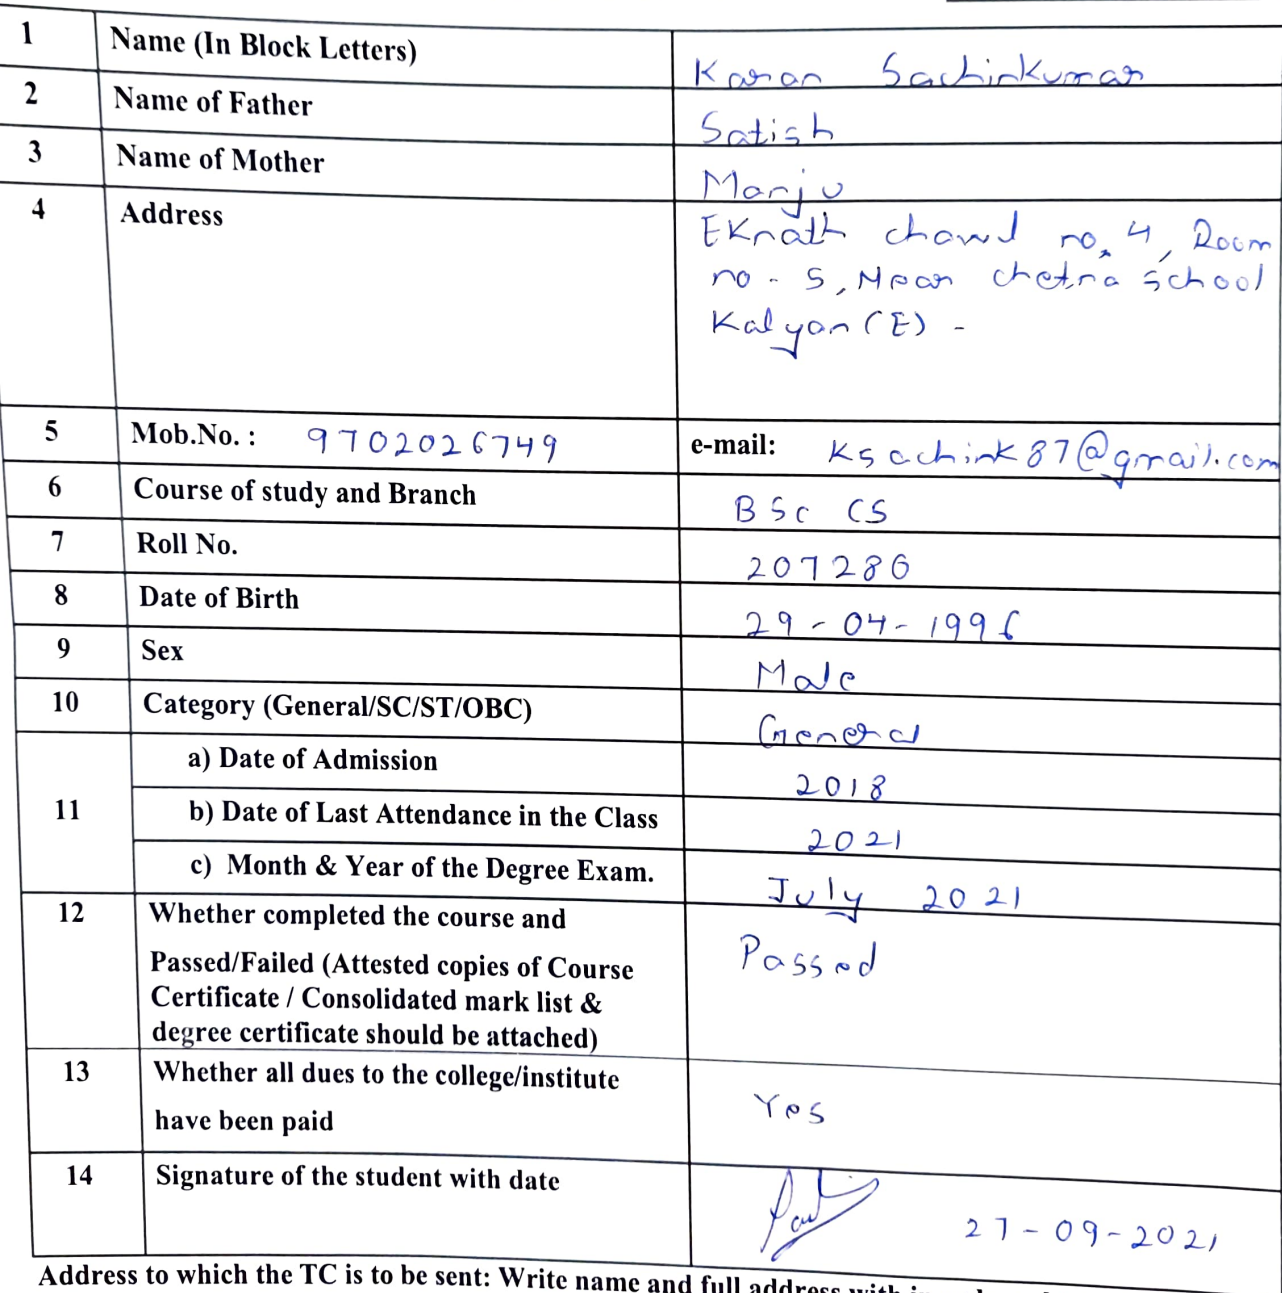 1 Name (In Block Letters) Karan Sachinkumar
2 Name of Father Satish
3 Name of Mother Manju
4 Address EKnath chawl no. 4, Room
no - 5, Near chetna school
Kalyan (E) -
5 Mob.No. : 9702026749 e-mail: Ksachink87@gmail.com
6 Course of study and Branch BSc CS
7 Roll No. 207286
8 Date of Birth 29-04-1996
9 Sex Male
10 Category (General/SC/ST/OBC) General
11 a) Date of Admission 2018
b) Date of Last Attendance in the Class 2021
c) Month & Year of the Degree Exam. July 2021
12 Whether completed the course and Passed
Passed/Failed (Attested copies of Course
Certificate / Consolidated mark list &
degree certificate should be attached)
13 Whether all dues to the college/institute Yes
have been paid
14 Signature of the student with date 27-09-2021
Address to which the TC is to be sent: Write name and full address with